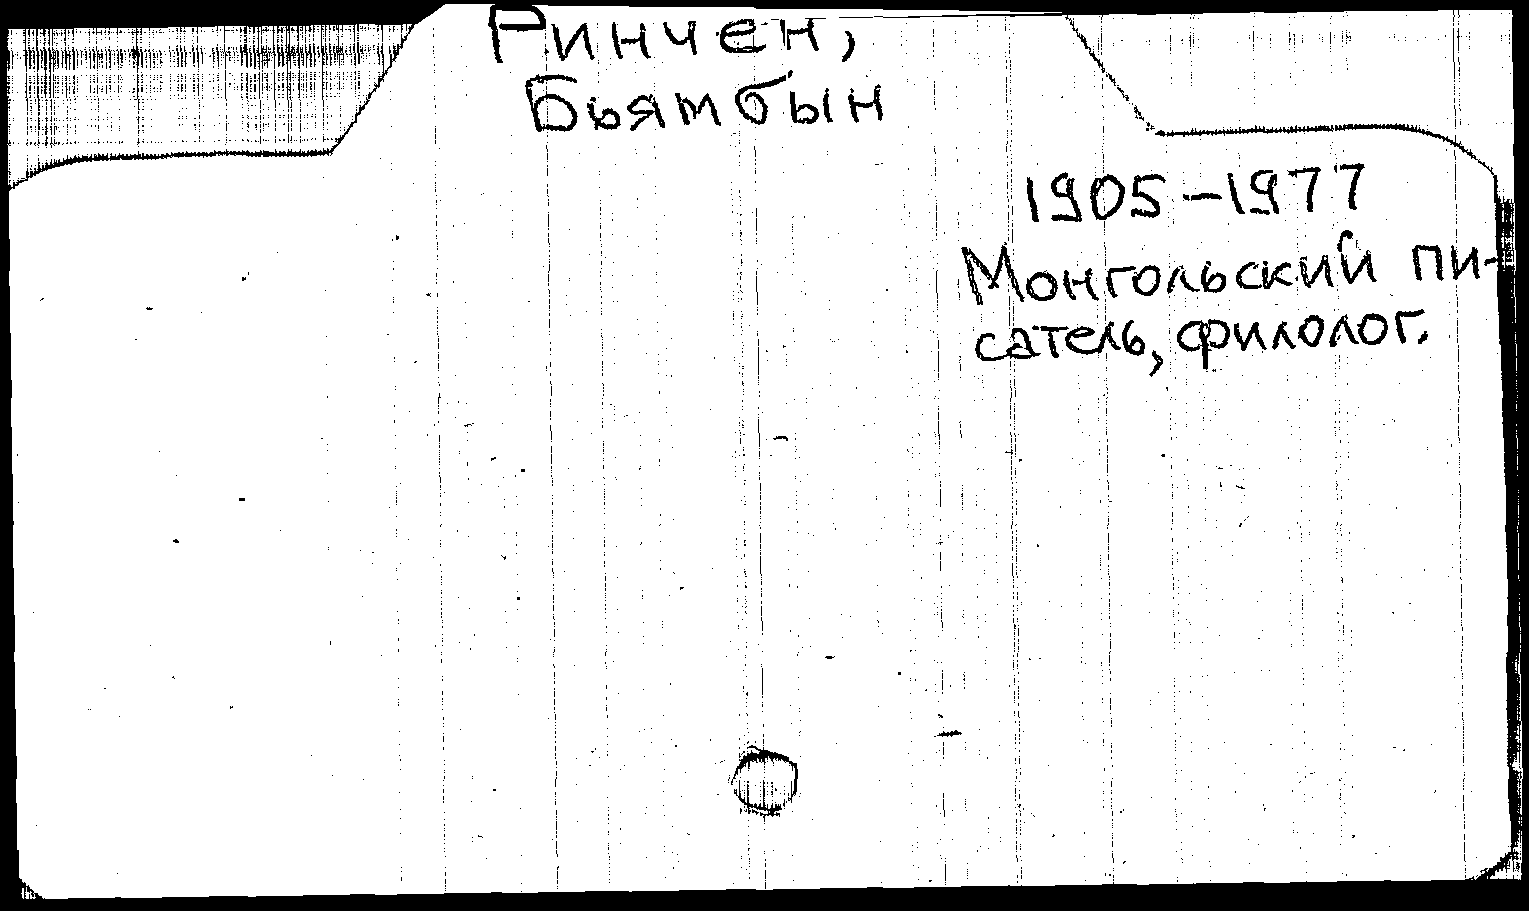 Ринчен,
Бьямбын
1905-1977
Монгольский пи-
сатель, филолог.